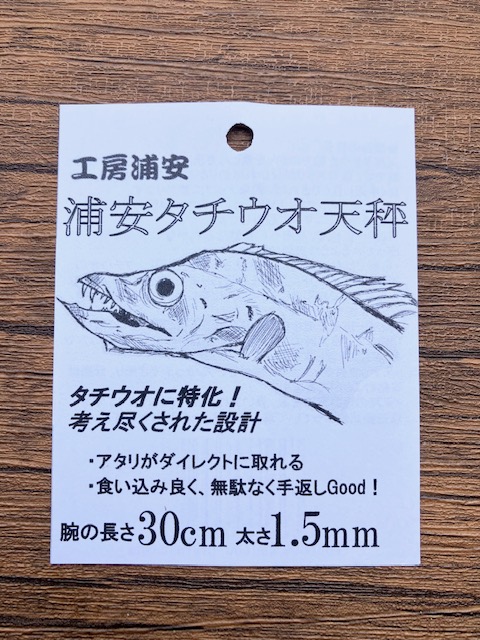 工房浦安
浦安タチウオ天秤
タチウオに特化！
考え尽くされた設計
・アタリがダイレクトに取れる
・食い込み良く、無駄なく手返しGood！
腕の長さ30cm 太さ1.5mm